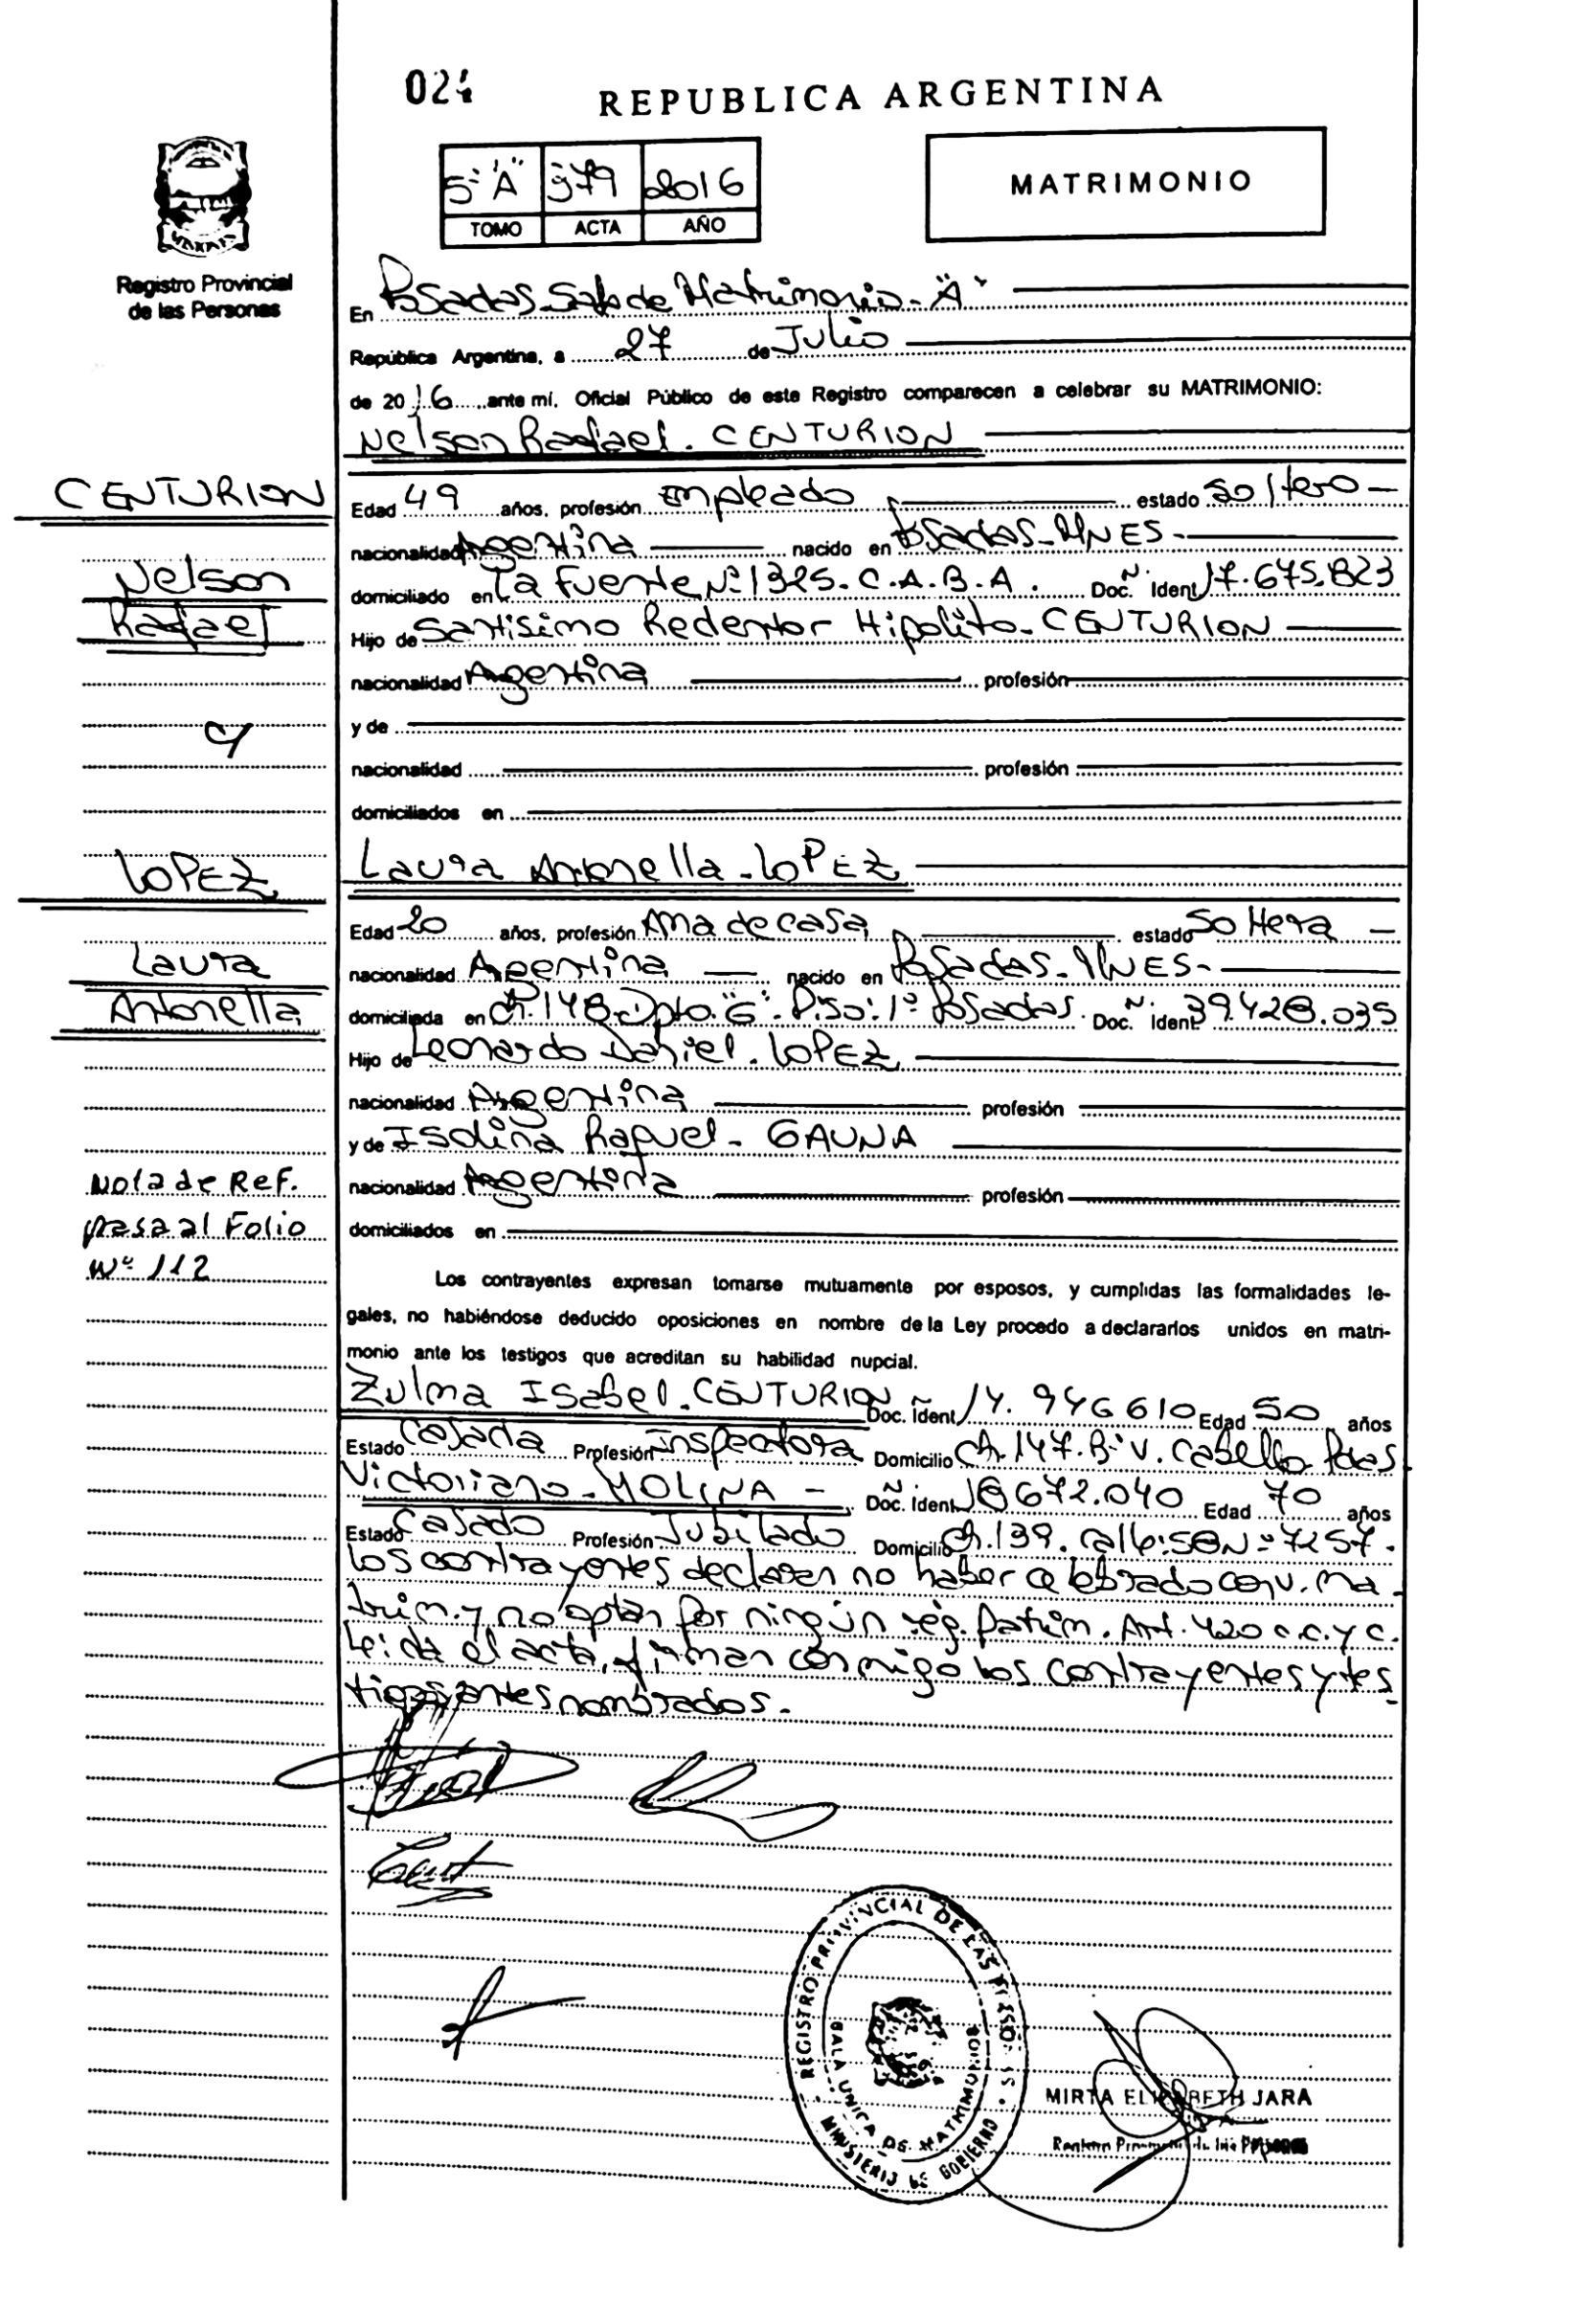 024
REPUBLICA ARGENTINA
5º "A" 979 2016
TOMO ACTA AÑO
MATRIMONIO
Registro Provincial
de las Personas
En Posadas Sala de Matrimonio - "A"
República Argentina, a 27 de Julio
de 2016 ante mí, Oficial Público de este Registro comparecen a celebrar su MATRIMONIO:
Nelson Rafael. CENTURION
CENTURION
Nelson
Rafael
y
LOPEZ
Laura
Antonella
Nota de Ref.
pasa al Folio
Nº 112
Edad 49 años, profesión empleado estado soltero -
nacionalidad Argentina nacido en Posadas - MNES -
domiciliado en La Fuente Nº 1325 - C.A.B.A. Doc. Ident 17.675.823
Hijo de Santisimo Redentor Hipolito - CENTURION
nacionalidad Argentina profesión
y de
nacionalidad profesión
domiciliados en
Laura Antonella - LOPEZ
Edad 20 años, profesión Ama de casa estado soltera -
nacionalidad Argentina nacido en Posadas - MNES -
domiciliada en Ch. 148 - Dpto. "G". Piso: 1º Posadas. Doc. Ident 39.428.035
Hijo de Leonardo Daniel. LOPEZ
nacionalidad Argentina profesión
y de Isolina Raquel - GAUNA
nacionalidad Argentina profesión
domiciliados en
Los contrayentes expresan tomarse mutuamente por esposos, y cumplidas las formalidades le-
gales, no habiéndose deducido oposiciones en nombre de la Ley procedo a declararlos unidos en matri-
monio ante los testigos que acreditan su habilidad nupcial.
Zulma Isabel. CENTURION Doc. Ident 14.946610 Edad 50 años
Estado Casada Profesión Inspectora Domicilio Ch. 147. Bº V. Cabello Pdas.
Victoriano - MOLINA - Doc. Ident 8672.040 Edad 70 años
Estado Casado Profesión Jubilado Domicilio Ch. 139. Calle: 58 Nº 7257.
Los contrayentes declaran no haber celebrado conv. ma-
trim. y no optan por ningún reg. Patrim. Art. 420 c.c. y c.
Leída el acta, firman conmigo los contrayentes y tes-
tigos antes nombrados.
REGISTRO PROVINCIAL DE LAS PERSONAS
SALA UNICA DE MATRIMONIOS
MINISTERIO DE GOBIERNO
MIRTA ELIZABETH JARA